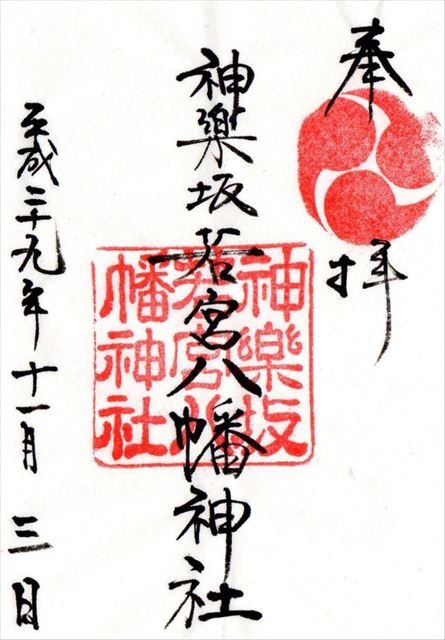 奉拝
神楽坂若宮八幡神社
神樂坂
若宮八
幡神社
平成二十九年十一月三日